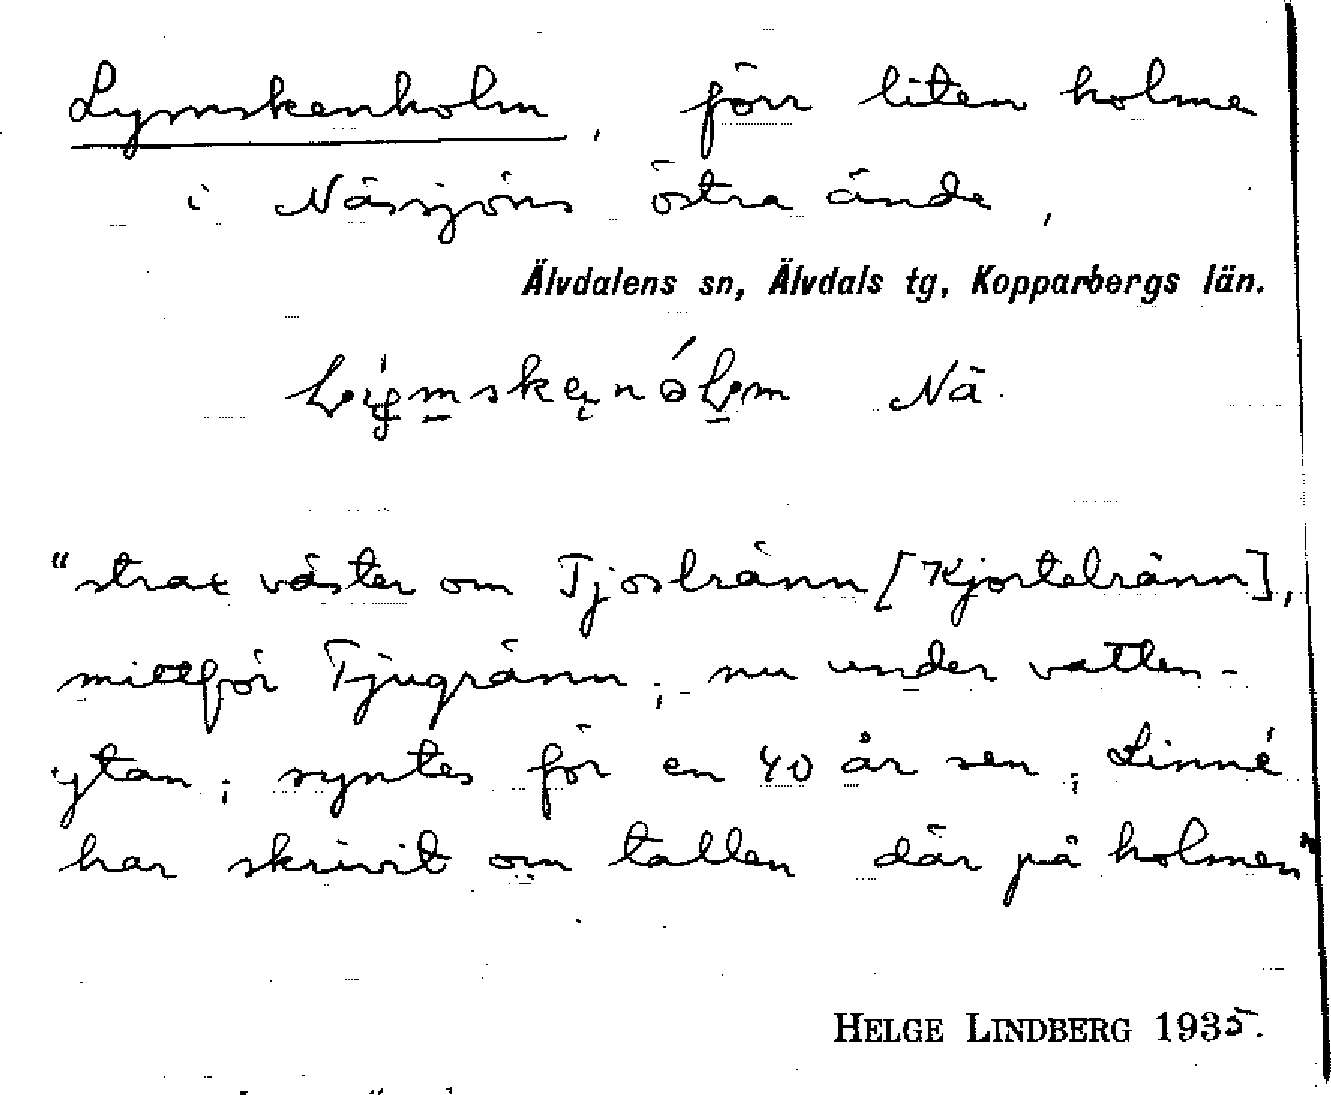 Lymskenholm, förr liten holme
i Nässjöns östra ände,
Älvdalens sn, Älvdals tg, Kopparbergs län.
Nä.
"strax väster om Tjoslränn [Kjortelränn],
mittför Tjugränn, nu under vatten-
ytan; syntes för en 40 år sen; Linné
har skrivit om tallen där på holmen"
HELGE LINDBERG 1935.